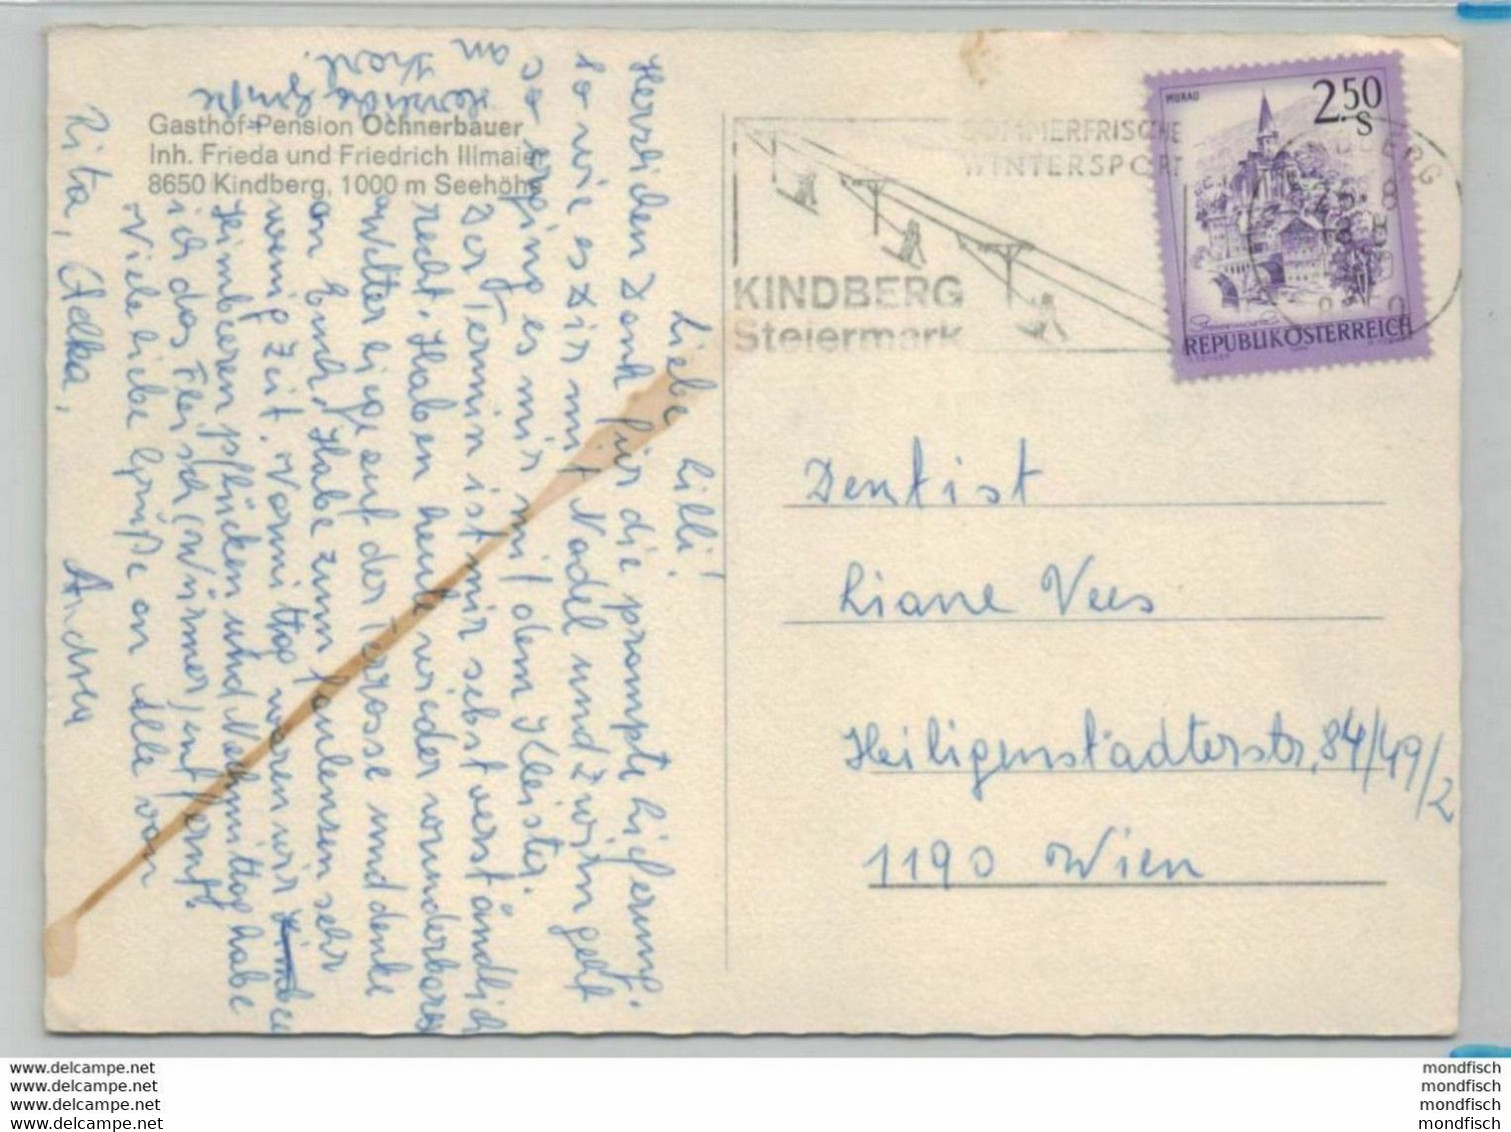 Gasthof-Pension Ochnerbauer
Inh. Frieda und Friedrich Illmaier
8650 Kindberg, 1000 m Seehöhe
Liebe Lilli!
Herzlichen Dank für die prompte Lieferung.
So wie es Dir mit Nadel und Zwirn geht
so erging es mir mit dem Kleister.
Der Termin ist mir selbstverständlich
recht. Haben heute wieder wunderbares
Wetter liege auf der Terrasse und denke
an Euch. Habe zum faulenzen sehr
wenig Zeit. Vormittag waren wir
Himbeeren pflücken und Nachmittag habe
ich das Fleisch (Würmer) entfernt.
Viele liebe Grüße an Alle von
Rita, Edka, Andrea
Herzliche Grüße
an
SOMMERFRISCHE
WINTERSPORT
KINDBERG
Steiermark
MURAU
2.50
S
REPUBLIK ÖSTERREICH
Dentist
Liane Vees
Heiligenstädterstr. 84/49/2
1190 Wien
www.delcampe.net
www.delcampe.net
www.delcampe.net
www.delcampe.net
mondfisch
mondfisch
mondfisch
mondfisch